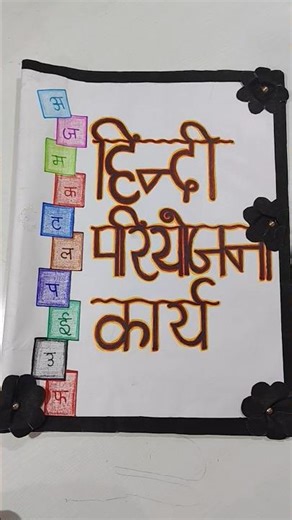 हिन्दी
परियोजना
कार्य
अ
ज
म
क
ट
प
उ
फ